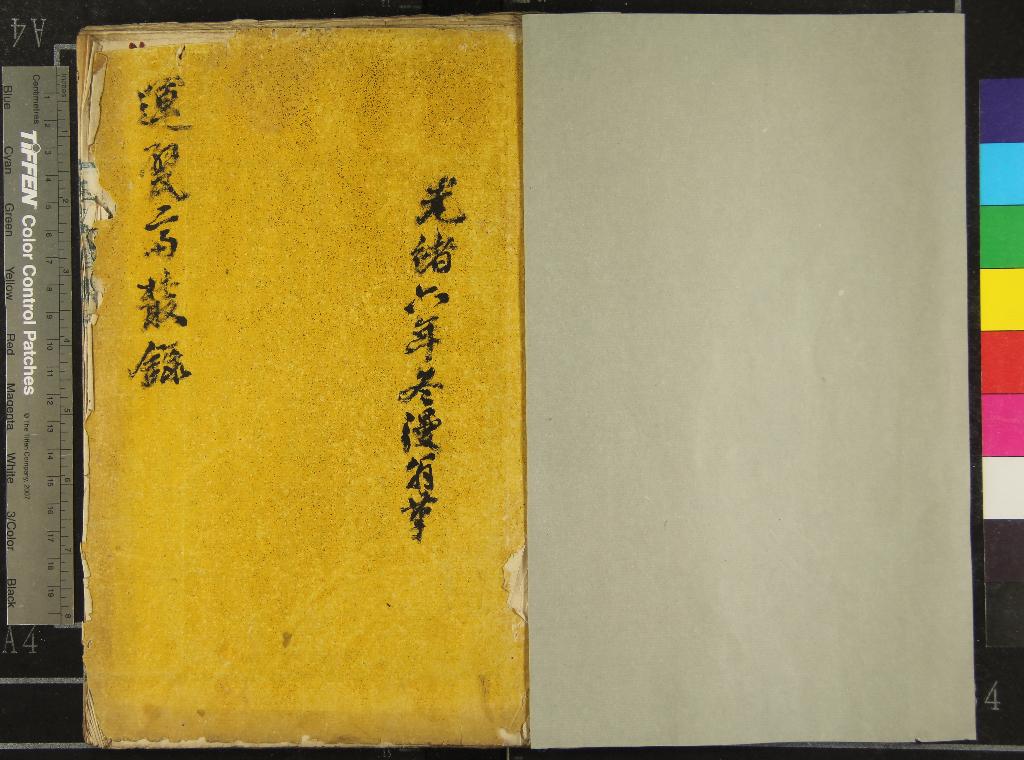 光緒六年冬漫翁筆
運甓齋叢錄
TIFFEN Color Control Patches
© The Tiffen Company, 2007
Centimetres
Inches
Blue
Cyan
Green
Yellow
Red
Magenta
White
3/Color
Black
1 2 3 4 5 6 7 8 9 10 11 12 13 14 15 16 17 18 19
1 2 3 4 5 6 7 8
A4
A4
4